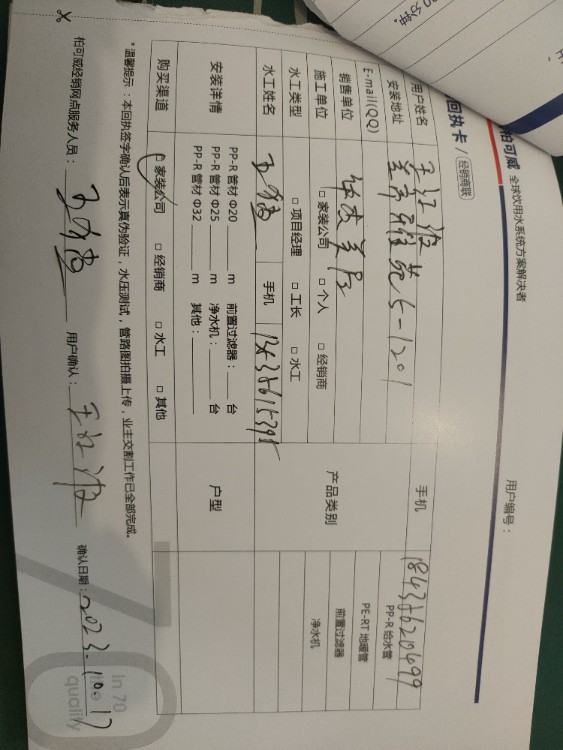 30分钟。
柏可威 全球饮用水系统方案解决者
回执卡 / 经销商联
用户编号：
用户姓名 王江波 手机 18435620499
安装地址 5-1201 PP-R 给水管
E-mail(QQ) PE-RT 地暖管
销售单位 产品类别 前置过滤器
施工单位 □ 家装公司 □ 个人 □ 经销商 净水机
水工类型 □ 项目经理 □ 工长 □ 水工
水工姓名 手机
安装详情 PP-R 管材 Φ20 ____ m 前置过滤器：____ 台 户型
PP-R 管材 Φ25 ____ m 净水机：____ 台
PP-R 管材 Φ32 ____ m 其他：____
购买渠道 □ 家装公司 □ 经销商 □ 水工 □ 其他
*温馨提示：本回执签字确认后表示真伪验证，水压测试，管路图拍摄上传，业主交割工作已全部完成。
柏可威经销网点服务人员： 用户确认：王江波 确认日期：2023.10.17
In 70
quality